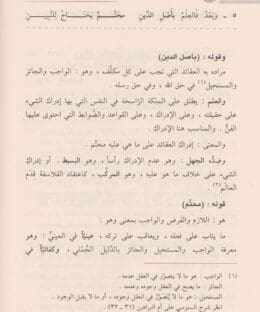 ٥ - وَبَعْدُ فَالعِلْمُ بِأَصْلِ الدِّينِ مُحَتَّمٌ يَحْتَاجُ لِلتَّبْيِينِ
وقوله : (بأصل الدين)
مراده به العقائد التي تجب على كل مكلَّف ، وهو : الواجب والجائز
والمستحيل(١) في حق الله ، وفي حق رسله .
والعلم : يطلق على الملكة الرَّاسخة في النفس التي بها إدراك الشيء
على حقيقته ، وعلى الإدراك ، وعلى القواعد والضَّوابط التي احتوى عليها
الفنُّ ، والمناسب هنا الإدراك .
والمعنى : إدراك العقائد على ما هي عليه محتَّم .
وضدُّه الجهل : وهو عدم الإدراك رأساً ، وهو البسيط . أو إدراك
الشيء على خلاف ما هو عليه ، وهو المركَّب ، كاعتقاد الفلاسفة قِدَم
العالم(٢) .
قوله : (محتَّم)
هو : اللازم والفرض والواجب بمعنى وهو :
ما يثاب على فعله ، ويعاقب على تركه ، عينيّاً في العينيِّ : وهو
معرفة الواجب والمستحيل والجائز بالدَّليل الجُمْلي ، وكفائيّاً في
(١) الواجب : هو ما لا يتصوَّر في العقل عدمه .
الجائز : ما يصح في العقل وجوده وعدمه .
المستحيل : هو ما لا يُتصوَّر في العقل وجوده ، أو ما لا يقبل الوجود .
شرح السنوسي على أم البراهين (٣١ - ٣٢)